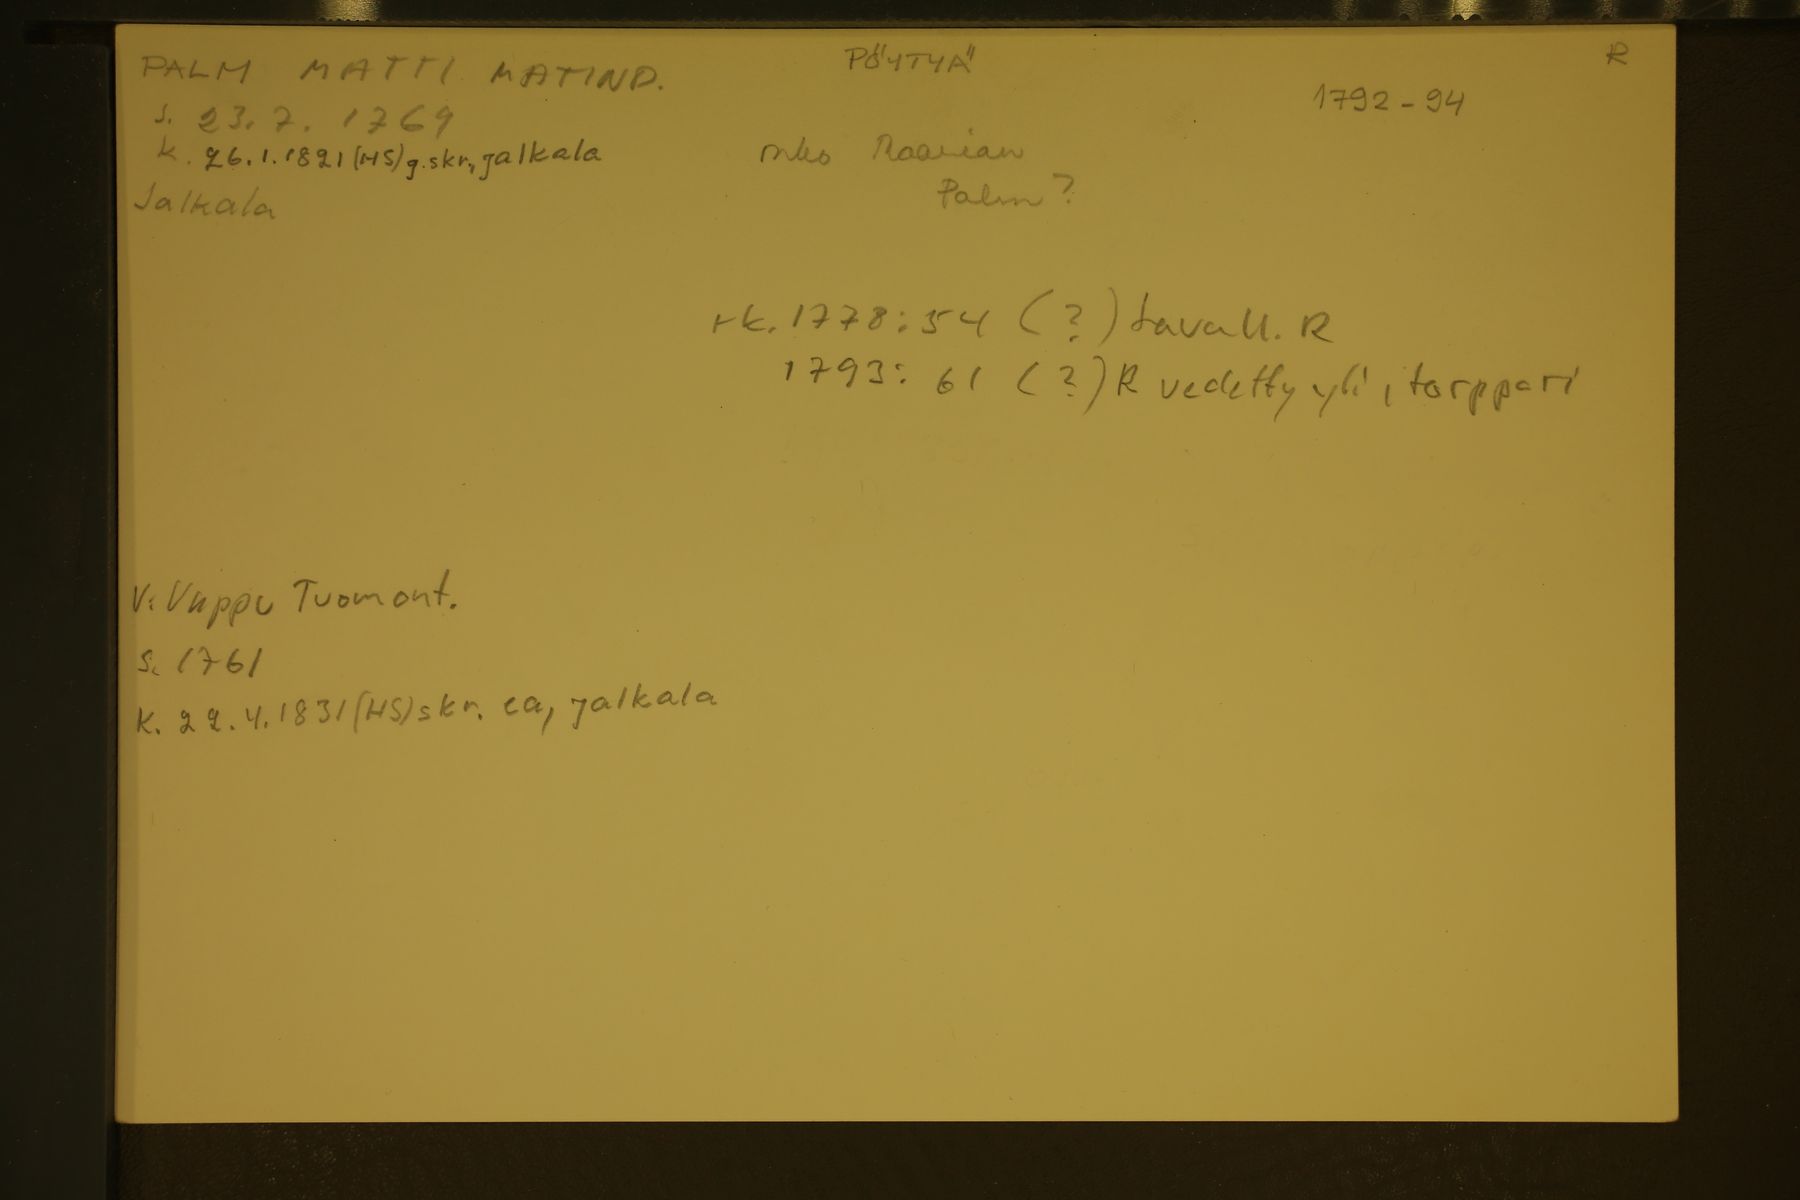 PALM MATTI MATINP. PÖYTYÄ R
1792-94
s. 23.7. 1769
k. 26.1.1821 (HS) g.skr., Jalkala
onko Raarian
Palm?
Jalkala
rk. 1778:54 (?) tavall. R
1793: 61 (?) R vedetty yli, torppari
V: Vappu Tuomont.
s. 1761
k. 22.4.1831 (HS) skr. ea, Jalkala